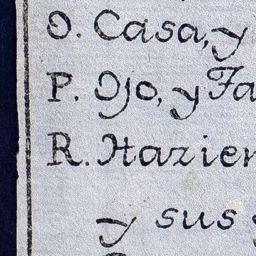 O. Casa, y
P. Ojo, y Fa
R. Hazien
y sus